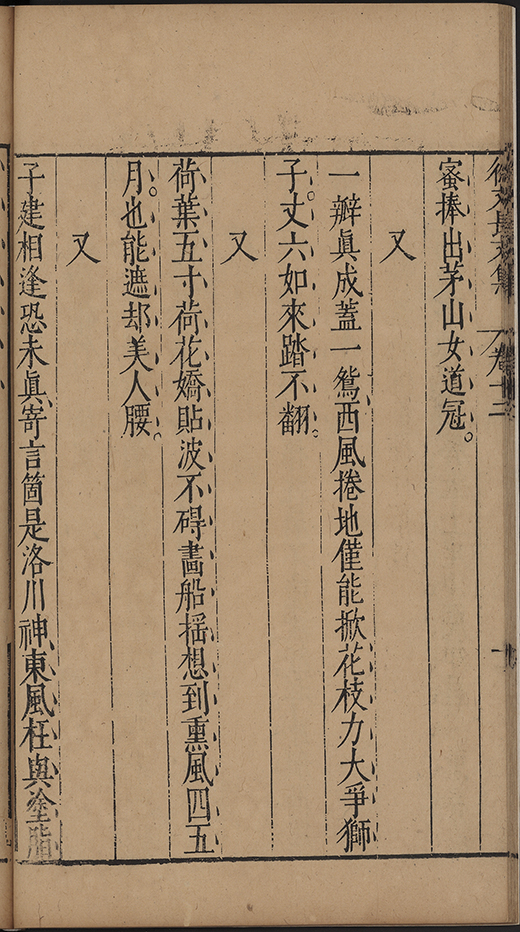 徐文長文集 卷十二
蜜捧出茅山女道冠。
又
一瓣眞成蓋一鴛西風捲地僅能掀花枝力大爭獅
子。丈六如來踏不翻。
又
荷葉五寸荷花嬌貼波不碍畫船摇想到熏風四五
月。也能遮却美人腰。
又
子建相逢恐未眞寄言箇是洛川神東風枉與塗脂